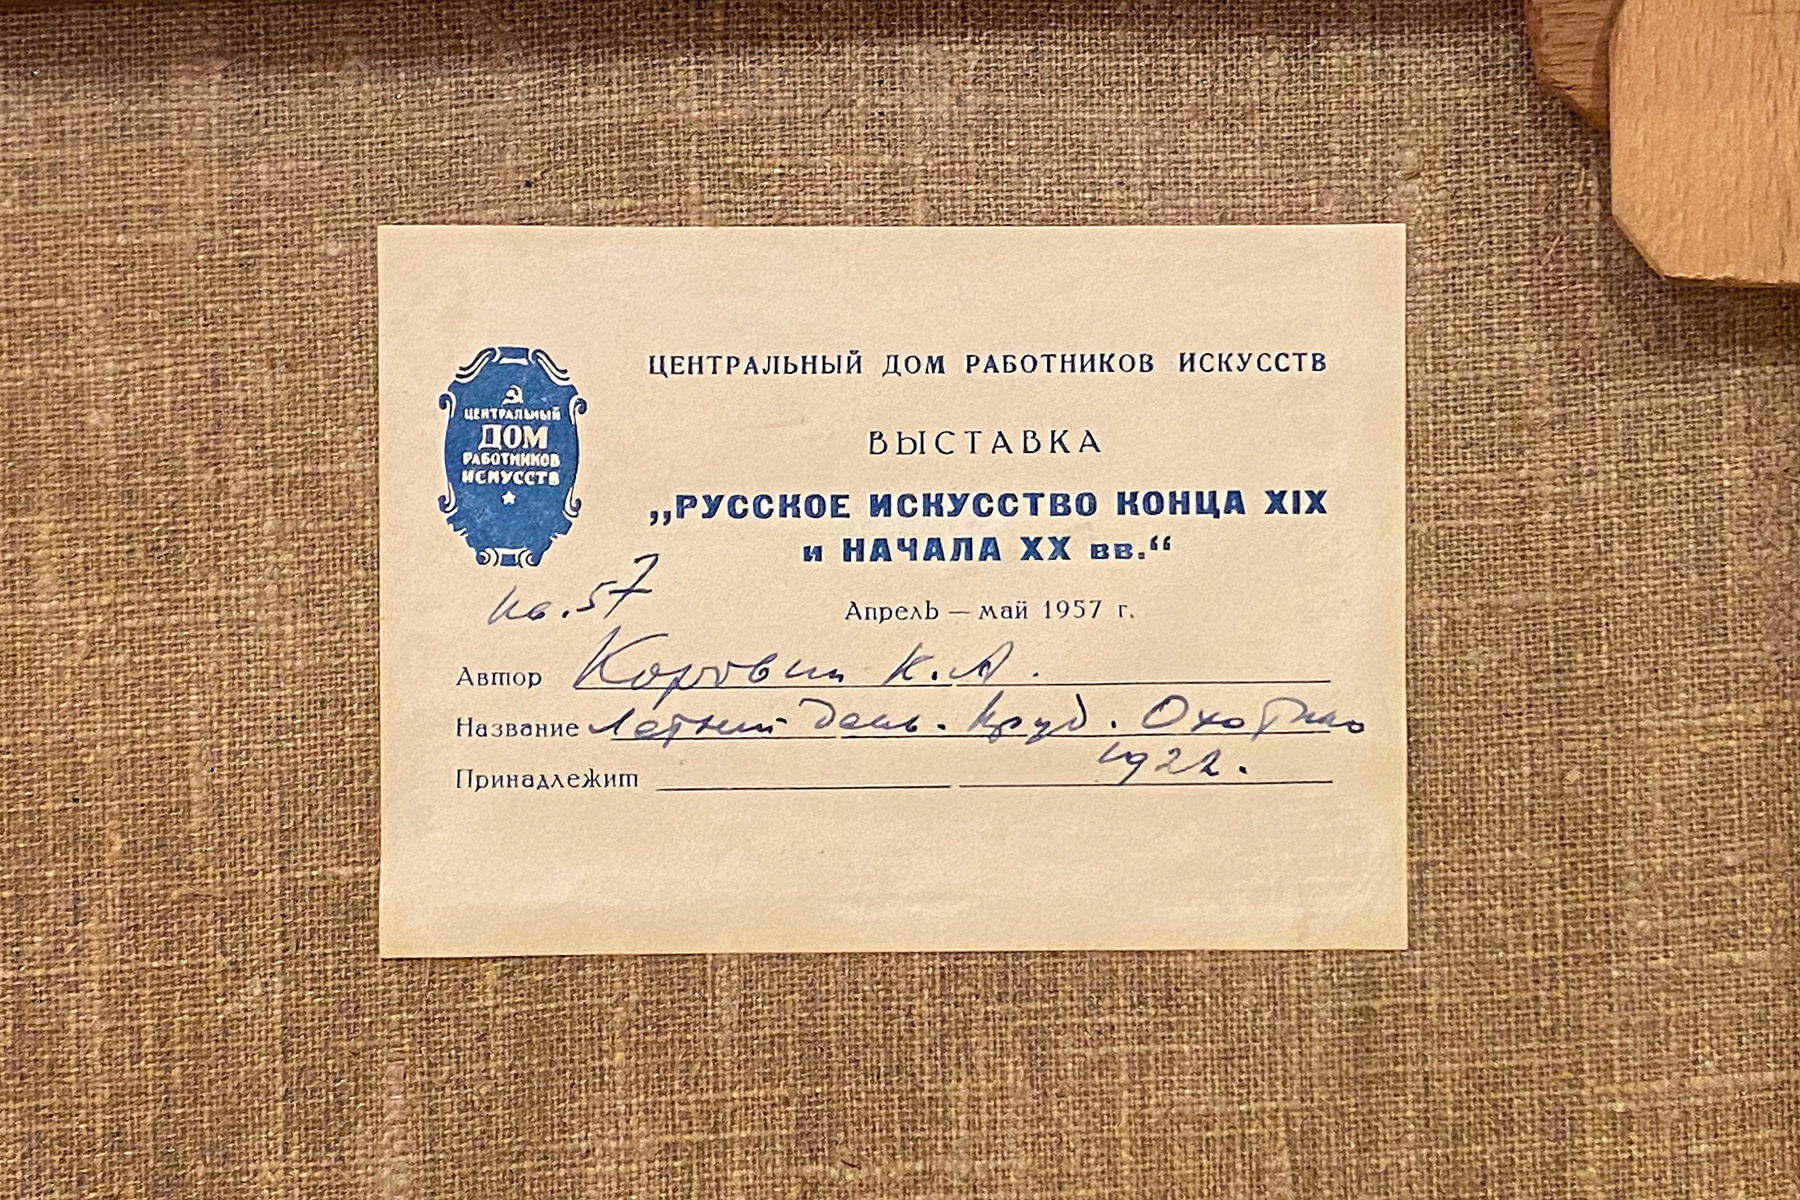 ЦЕНТРАЛЬНЫЙ
ДОМ
РАБОТНИКОВ
ИСКУССТВ
ЦЕНТРАЛЬНЫЙ ДОМ РАБОТНИКОВ ИСКУССТВ
ВЫСТАВКА
„РУССКОЕ ИСКУССТВО КОНЦА XIX
и НАЧАЛА XX вв.“
Апрель — май 1957 г.
кв. 57
Автор Коровин К. А.
Название Летний день. Пруд. Охотино
1922.
Принадлежит